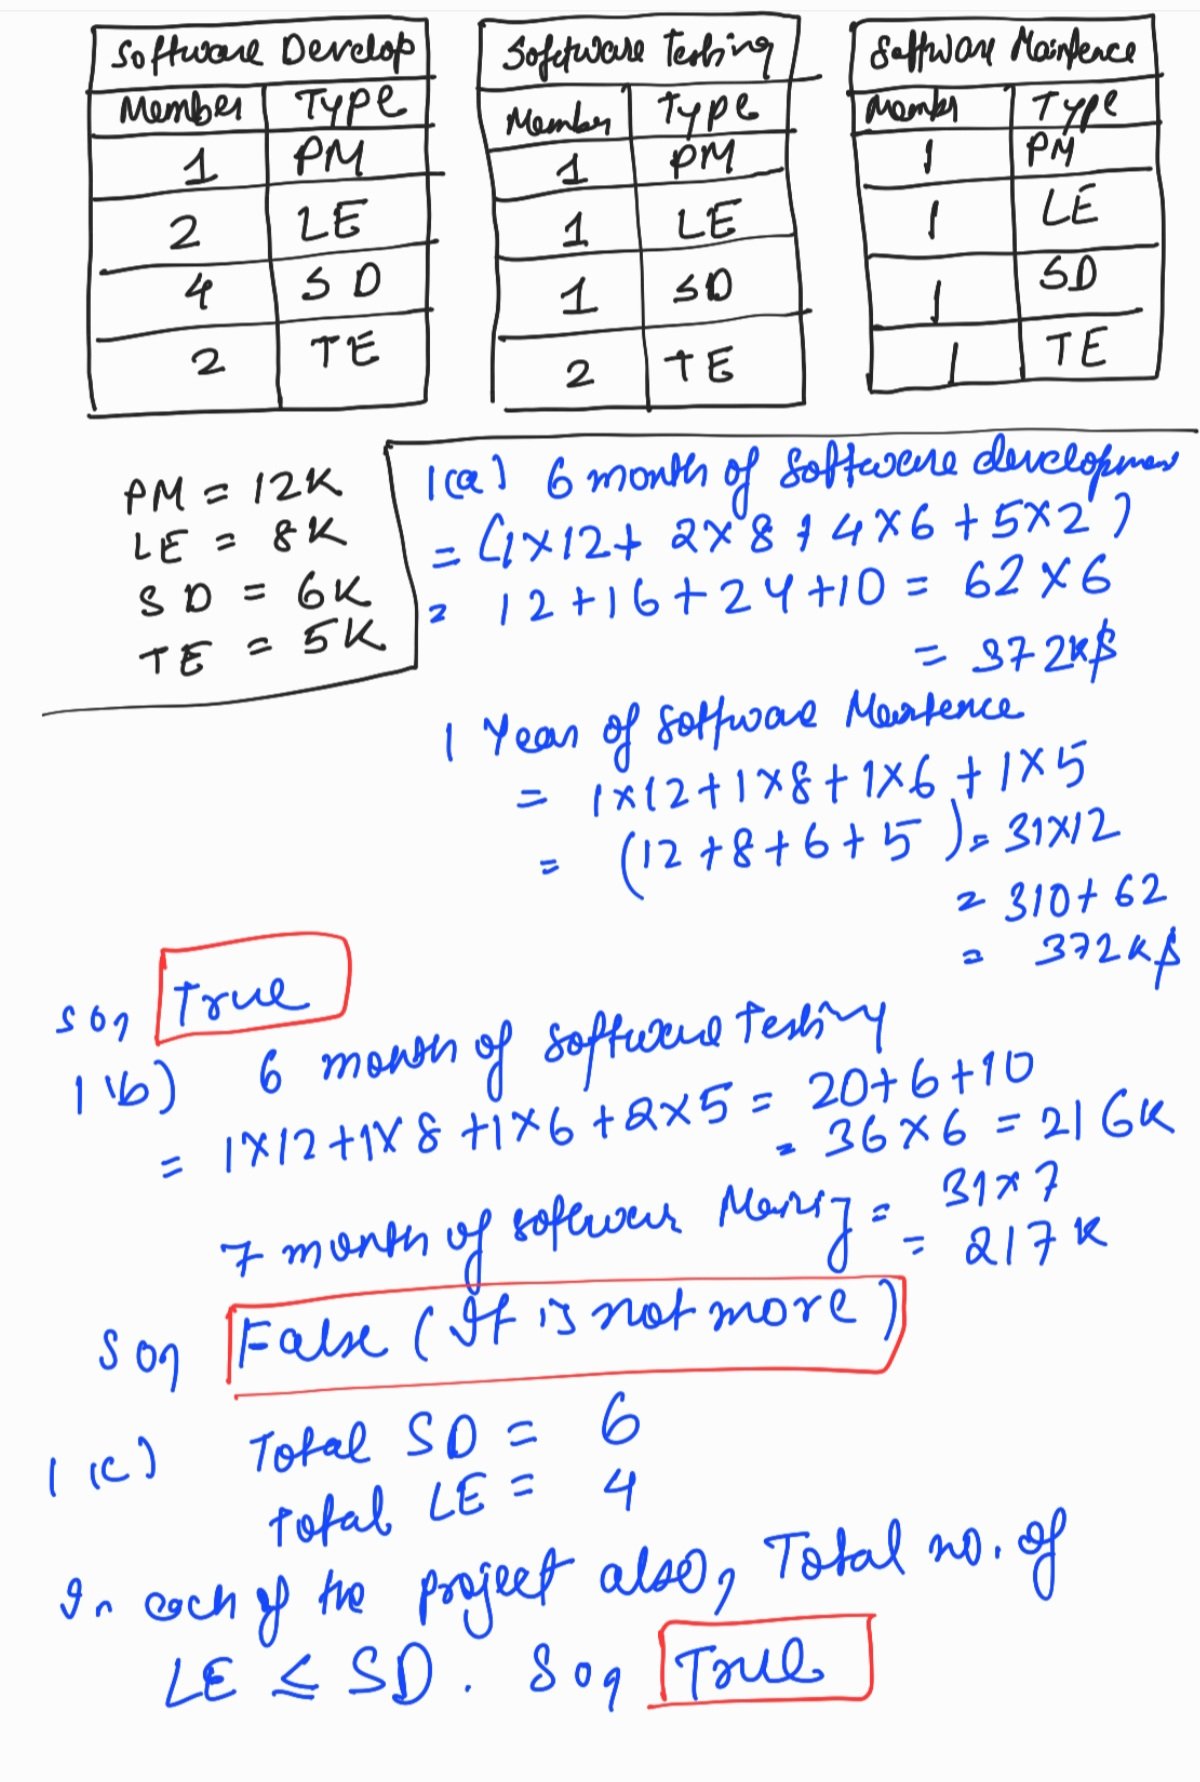 Software Develop
Member Type
1 PM
2 LE
4 SD
2 TE
Softtware Testing
Member Type
1 PM
1 LE
1 SD
2 TE
Software Maintence
Member Type
1 PM
1 LE
1 SD
1 TE
PM = 12K
LE = 8K
SD = 6K
TE = 5K
1(a) 6 month of software development
= (1×12+ 2×8+4×6+5×2)
= 12+16+24+10 = 62×6
= 372K$
1 Year of software Maintence
= 1×12+1×8+1×6+1×5
= (12+8+6+5) = 31×12
= 310+62
= 372K$
So, True
1(b) 6 month of software Testing
= 1×12+1×8+1×6+2×5 = 20+6+10
= 36×6 = 216K
7 month of software = 31×7
= 217K
So, False (It is not more)
1(c) Total SD = 6
total LE = 4
In each of the project also, Total no. of
LE ≤ SD. So, True